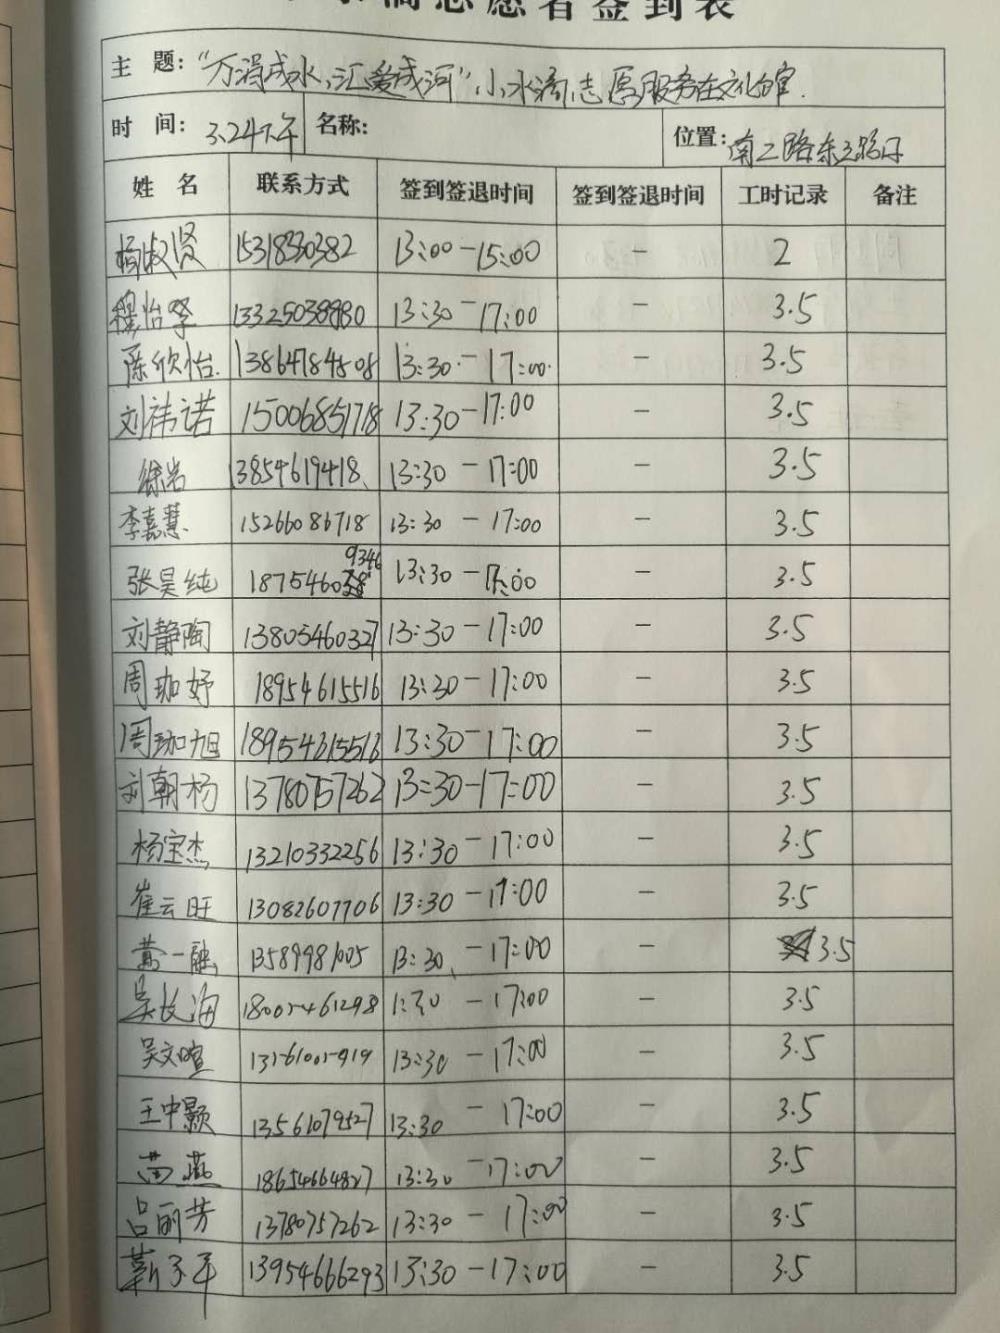 志愿者签到表
主 题：“万涓成水，汇爱成河”小水滴志愿服务在文化宫．
时 间：3.24下午 名称： 位置：南二路东三路口
姓 名 联系方式 签到签退时间 签到签退时间 工时记录 备注
杨淑贤 15318330382 13:00-15:00 - 2
穆怡 13325038980 13:30-17:00 - 3.5
陈欣怡 13864784808 13:30-17:00 - 3.5
刘祎诺 15006851718 13:30-17:00 - 3.5
徐岩 13854619418 13:30-17:00 - 3.5
李嘉慧 15266086718 13:30-17:00 - 3.5
张昊纯 18754609346 13:30-17:00 - 3.5
刘静陶 13805460327 13:30-17:00 - 3.5
周珈妤 18954615516 13:30-17:00 - 3.5
周珈旭 18954615516 13:30-17:00 - 3.5
刘朝杨 13780757262 13:30-17:00 - 3.5
杨宝杰 13210332256 13:30-17:00 - 3.5
崔云旺 13082607706 13:30-17:00 - 3.5
黄一融 13589981005 13:30-17:00 - 3.5
吴长海 18005461298 1:30-17:00 - 3.5
吴文暄 13:30-17:00 - 3.5
王中颢 13561079527 13:30-17:00 - 3.5
苗燕 18654664827 13:30-17:00 - 3.5
吕丽芳 13780757262 13:30-17:00 - 3.5
靳子平 13954666293 13:30-17:00 - 3.5